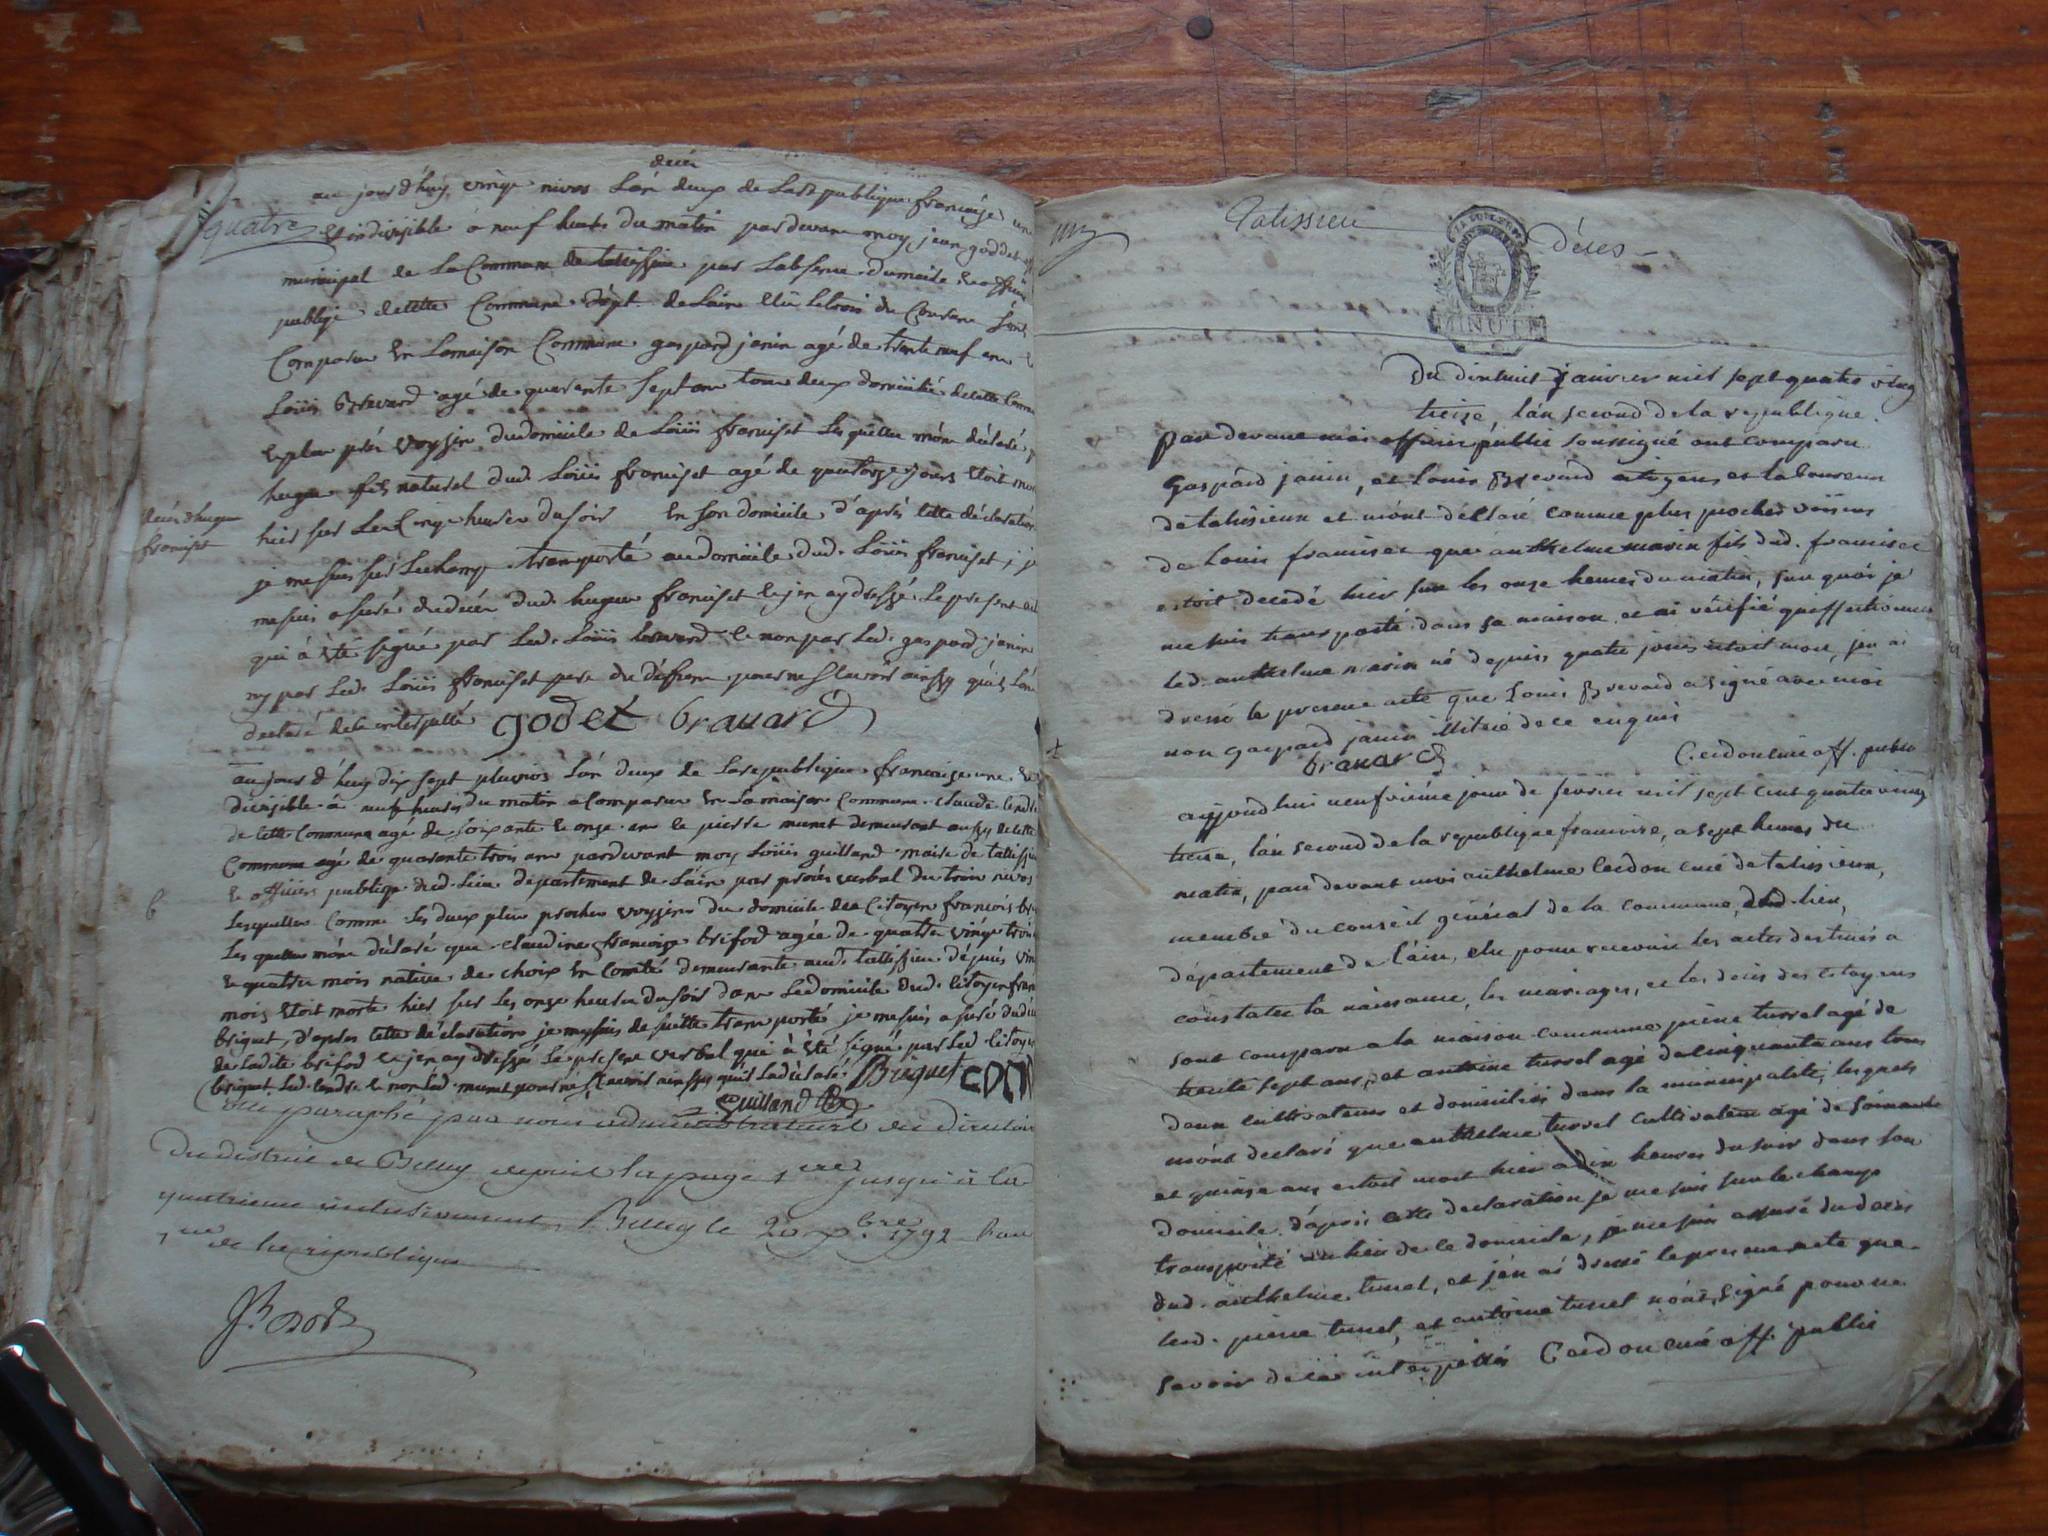 decés
quatre
au jourd'huy vingt nivos L'an deux de La republique françaize une
et indivizible a neuf heures du matin pardevant moy jean goddet
municipal de La Commune de talissieu par L'absence du maire et officier
publiqe de cette Commune dépt. de L'ain élu le trois du Courant sont
Comparu En La maison Commune gaspard janin agé de trente neuf ans
Loüis Brevard agé de quarante sept ans tous deux domicilié de cette Comm
et plus prés voyzin du domicile de Loüis franciset Les quelles m'ont déclaré
hugue fils naturel dud. Loüis franciset agé de quatorze jours Etoit mort
décés d'hugue
franciset
hier sur Les Cinq heures du soir En son domicile d'aprés cette déclaration
je me suis sur Le champ transporté au domicile dud. Loüis franciset, je
me suis assuré du décés dud. hugue franciset et j'en ay dressé Le present
qui à été signé par Led. Loüis brevard et non par Led. gaspard janin
ny par Led. Loüis franciset pere du déffunt pour ne Sçavoir ainsy qu'ils L'ont
declaré de ce interpellé godet bravard
au jour d'huy dix sept pluvios L'an deux de La republique francaize une et
divizible à neuf heures du matin a Comparu En La maison Commune Claude
de cette Commune agé de soixante et onze ans et pierre munet demeurant aussy de cette
Commune agé de quarante trois ans pardevant moy Loüis guilland maire de talissieu
et officier publiqe dud. Lieu département de L'ain par procés verbal du trois nivos
6
Lesquelles Comme Les deux plus proches voyzins du domicile du Citoyen francois
Les quelles m'ont déclaré que claudine françoize brifod agée de quatre vingt trois
et quatre mois native de choix En Comté demeurante aud. talissieu dépuis
mois Etoit morte hier sur Les onze heures du soir dans Le domicile dud. Citoyen
briquet, d'aprés cette déclaration je me suis de suitte transporté je me suis assuré du
de Ladite brifod et j'en ay dressé Le present verbal qui à été signé par Led. Citoyen
briquet Led. et non Led. munet pour ne Sçavoir ainsy qu'il La déclaré. Briquet
Guilland
Cotté paraphé par nous administrateur du directoire
du district de Belley depuis la page 1ere jusqu'à la
quatrieme inclusivement, Belley le 20 Xbre 1792 L'an
1er de la republique
Talissieu
MINUTE
Déces
Du dixhuit janvier mil sept quatre vingt
treize, l'an second de la republique.
Par devant moi officier public soussigné ont comparu
Gaspard janin, et Louis Brevard citoyens et laboureurs
de talissieux et m'ont déclaré comme plus proches voisins
de Louis franciset que anthelme marin fils dud. franciset
estoit decedé hier sur les onze heures du matin, sur quoi je
me suis transporté dans sa maison et ai vérifié qu'effectivement
led. anthelme marin né depuis quatre jours étoit mort, j'en ai
dressé le present acte que Louis Brevard a signé avec moi
non gaspard janin illitré de ce enquis
bravard Cerdon curé off. public
aujourd'hui neufvième jour de fevrier mil sept cent quatre vingt
treize, l'an second de la republique francoise, a sept heures du
matin, par devant moi anthelme Cerdon curé de talissieux,
membre du conseil général de la commune, dud. lieu,
département de l'ain, elu pour recevoir les actes destinés a
constater la naissance, les mariages, et les decès des citoyens
sont comparu a la maison commune pierre turrel agé de
trente sept ans, et antoine turrel agé de cinquante ans tous
deux cultivateurs et domiciliés dans la municipalité, lesquels
m'ont declaré que anthelme turrel cultivateur agé de soixante
et quinze ans estoit mort hier a dix heures du soir dans son
domicile. d'apres cette declaration je me suis sur le champ
transporté au lieu de ce domicile, je me suis assuré du decés
dud. anthelme turrel, et j'en ai dressé le present acte que
led. pierre turrel, et antoine turrel n'ont signé pour ne
savoir de ce interpellés Cerdon curé off. public